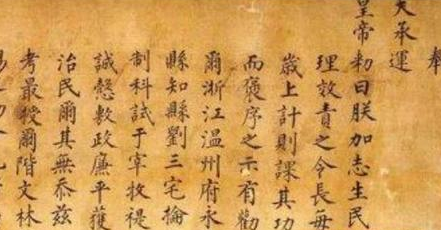 奉
天承運
皇帝勑曰朕加志生民
理效責之令長每
歲上計則課其功
而褒序之示有勸
爾浙江温州府永
縣知縣劉三宅掄
制科試于宰牧褆
誠慤敷政廉平獲
治民爾其無忝茲
考最授爾階文林